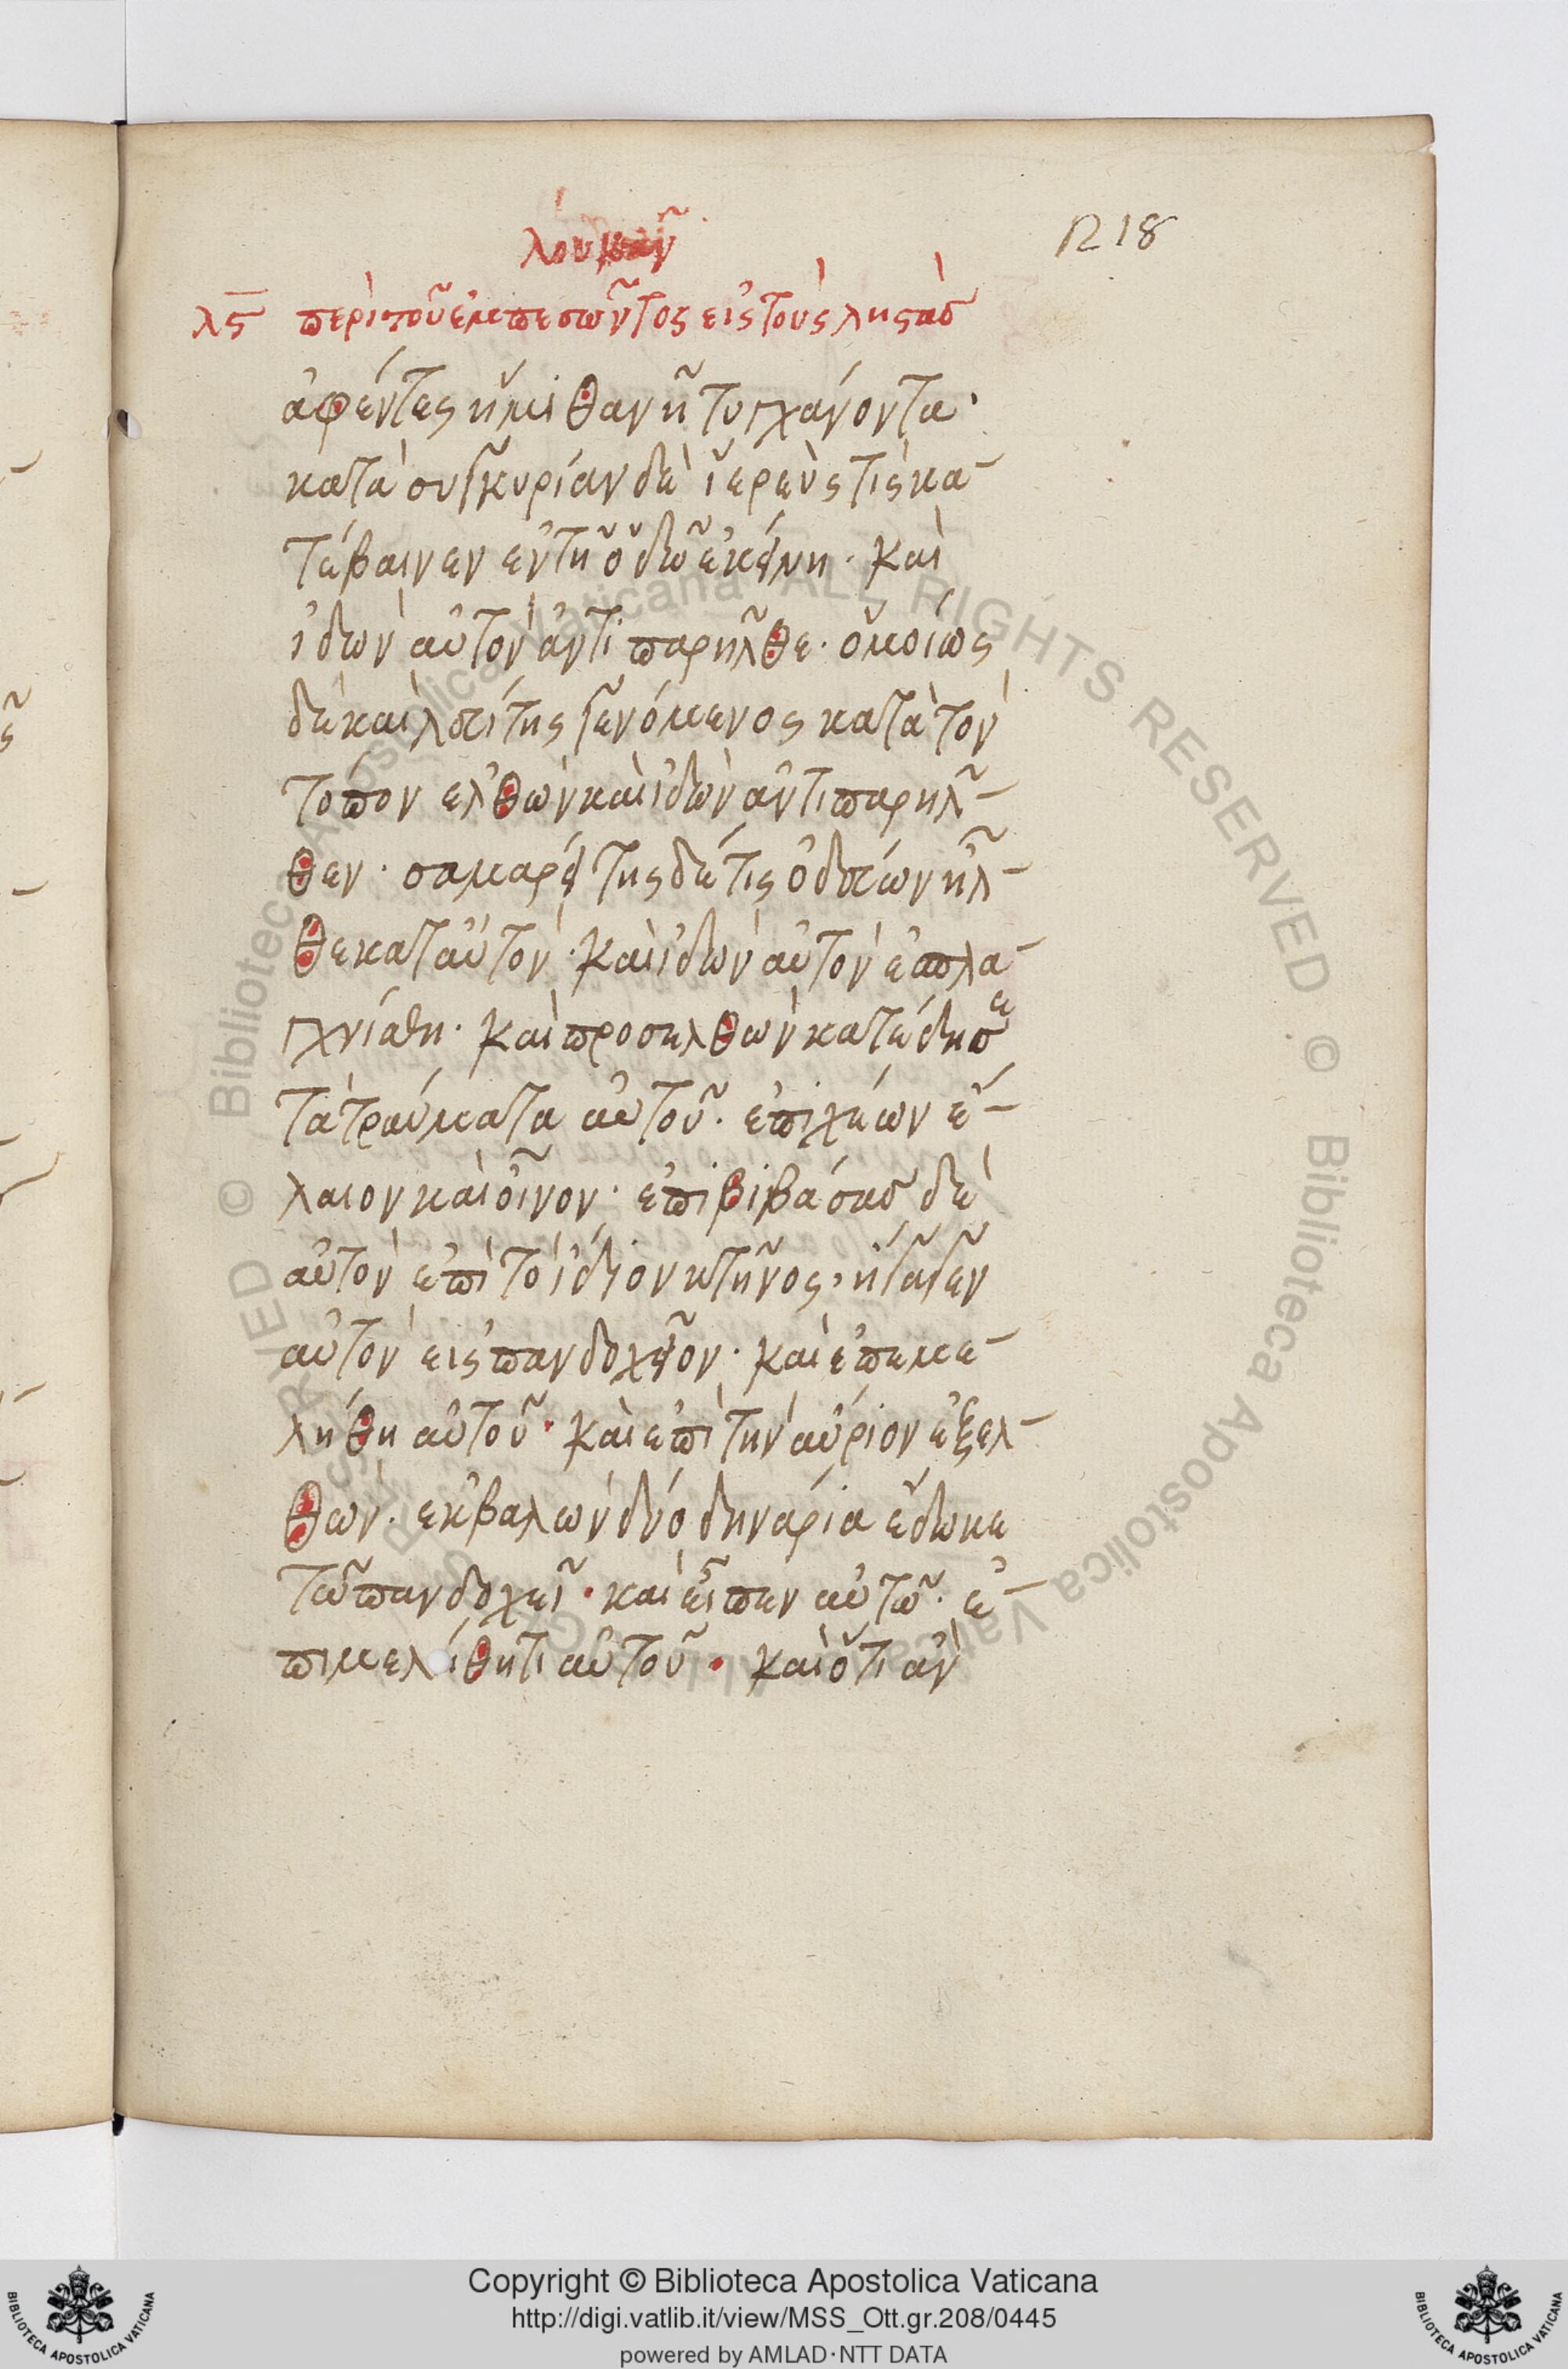 λουκᾶν
218
λϛ περὶ τοῦ ἐμπεσωῦντος εἰς τοὺς ληστὰς
ἀφέντες ἡμιθανῆ τυγχάνοντα·
κατὰ συγκυρίαν δὲ ἱερεὺς τὶς κα-
τέβαινεν ἐν τῆ ὁδῶ ἐκείνη· καὶ
ἰδὼν αὐτὸν ἀντιπαρῆλθε· ὁμοίως
δὲ καὶ λευίτης γενόμενος κατὰ τὸν
τόπον ἐλθὼν καὶ ἰδὼν ἀντιπαρῆλ-
θεν· σαμαρείτης δέ τις ὁδεύων ἦλ-
θε κατ αὐτὸν· καὶ ἰδὼν αὐτὸν ἐσπλα-
γχνίσθη· καὶ προσελθὼν κατέδησε
τὰ τραύματα αὐτοῦ· ἐπιχέων ἔ-
λαιον καὶ οἶνον· ἐπιβιβάσας δὲ
αὐτὸν ἐπὶ τὸ ἴδιον κτῆνος, ἤγαγεν
αὐτὸν εἰς πανδοχεῖον· καὶ ἐπεμε-
λήθη αὐτοῦ· καὶ ἐπὶ τὴν αὔριον ἐξελ-
θὼν· ἐκβαλὼν δύο δηνάρια ἔδωκε
τῶ πανδοχεῖ· καὶ εἶπεν αὐτῶ· ἐ-
πιμελίθητι αὐτοῦ· καὶ ὅτι ἂν
Copyright © Biblioteca Apostolica Vaticana
http://digi.vatlib.it/view/MSS_Ott.gr.208/0445
powered by AMLAD·NTT DATA
BIBLIOTECA APOSTOLICA VATICANA
BIBLIOTECA APOSTOLICA VATICANA